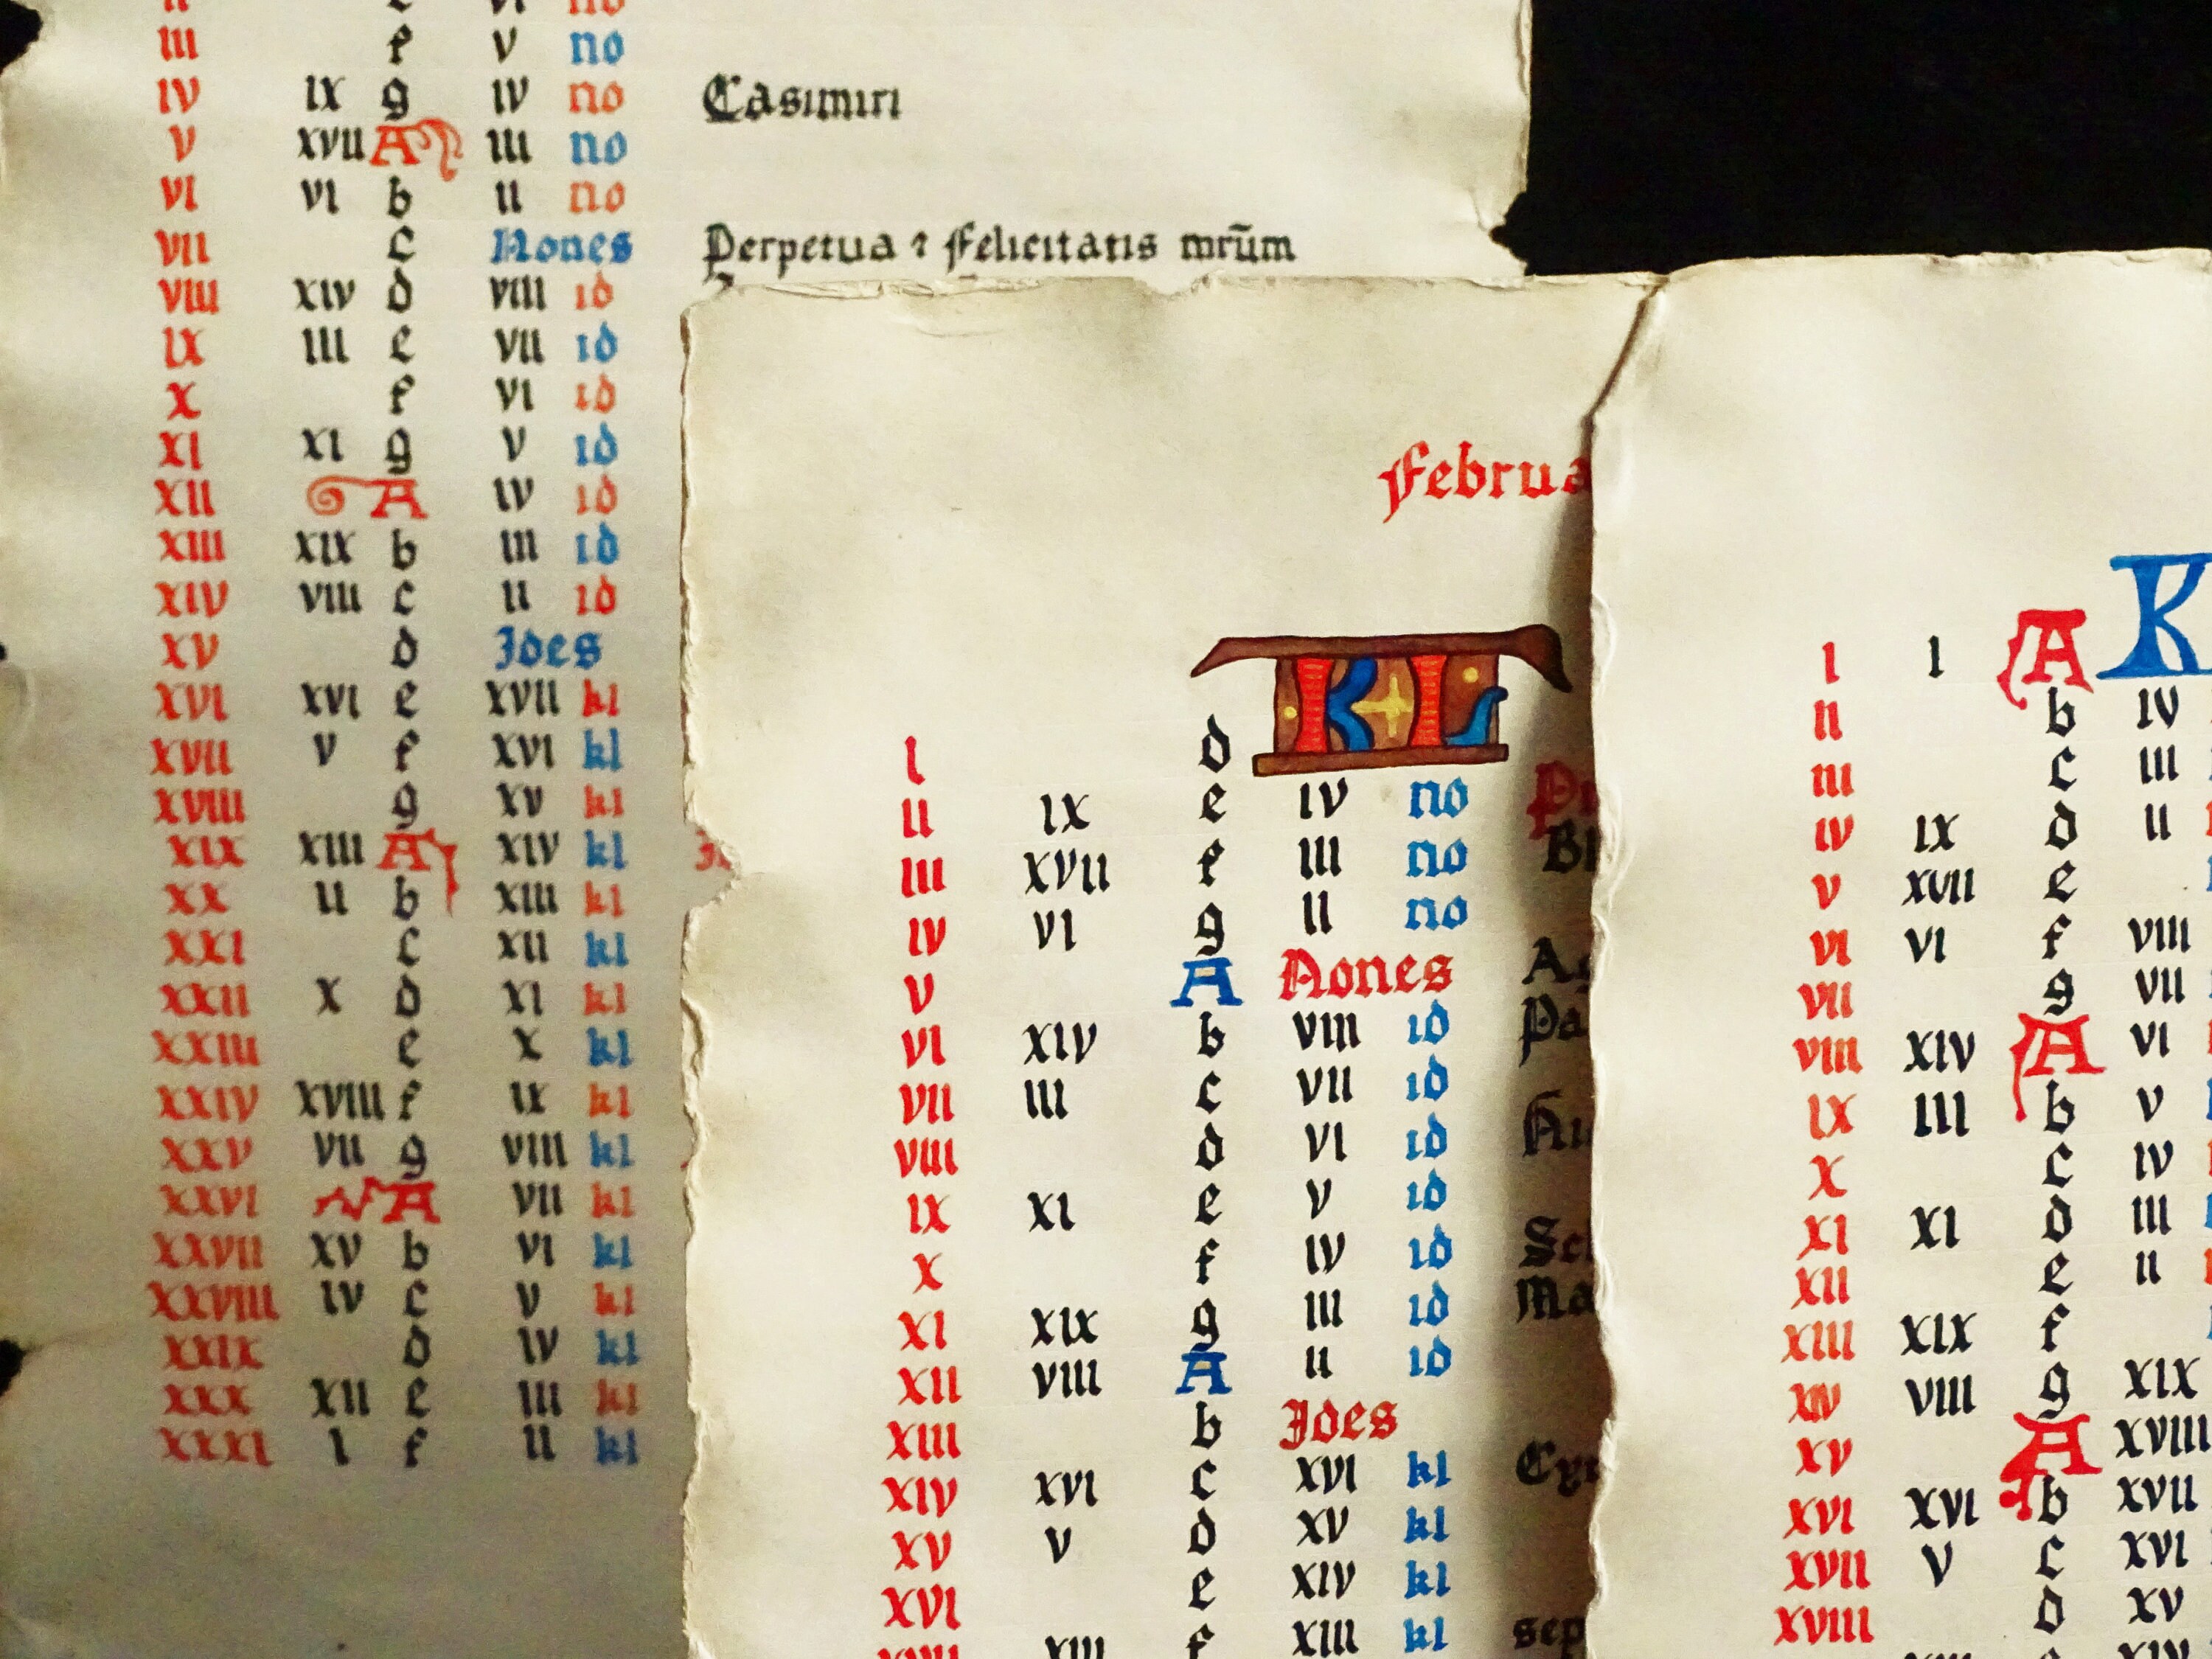 III f V no
IV IX g IV no Casimiri
V XVII A III no
VI VI b II no
VII c Nones Perpetua ⁊ Felicitatis mrūm
VIII XIV d VIII id
IX III e VII id
X f VI id
XI XI g V id
XII A IV id
XIII XIX b III id
XIV VIII c II id
XV d Ides
XVI XVI e XVII kl
XVII V f XVI kl
XVIII g XV kl
XIX XIII A XIV kl
XX II b XIII kl
XXI c XII kl
XXII X d XI kl
XXIII e X kl
XXIV XVIII f IX kl
XXV VII g VIII kl
XXVI A VII kl
XXVII XV b VI kl
XXVIII IV c V kl
XXIX d IV kl
XXX XII e III kl
XXXI I f II kl
Februa
I d KL
II IX e IV no
III XVII f III no
IV VI g II no
V A Nones
VI XIV b VIII id
VII III c VII id
VIII d VI id
IX XI e V id
X f IV id
XI XIX g III id
XII VIII A II id
XIII b Ides
XIV XVI c XVI kl
XV V d XV kl
XVI e XIV kl
XIII f XIII kl
I I A K
II b IV
III c III
IV IX d II
V XVII e
VI VI f VIII
VII g VII
VIII XIV A VI
IX III b V
X c IV
XI XI d III
XII e II
XIII XIX f
XIV VIII g XIX
XV A XVIII
XVI XVI b XVII
XVII V c XVI
XVIII d XV